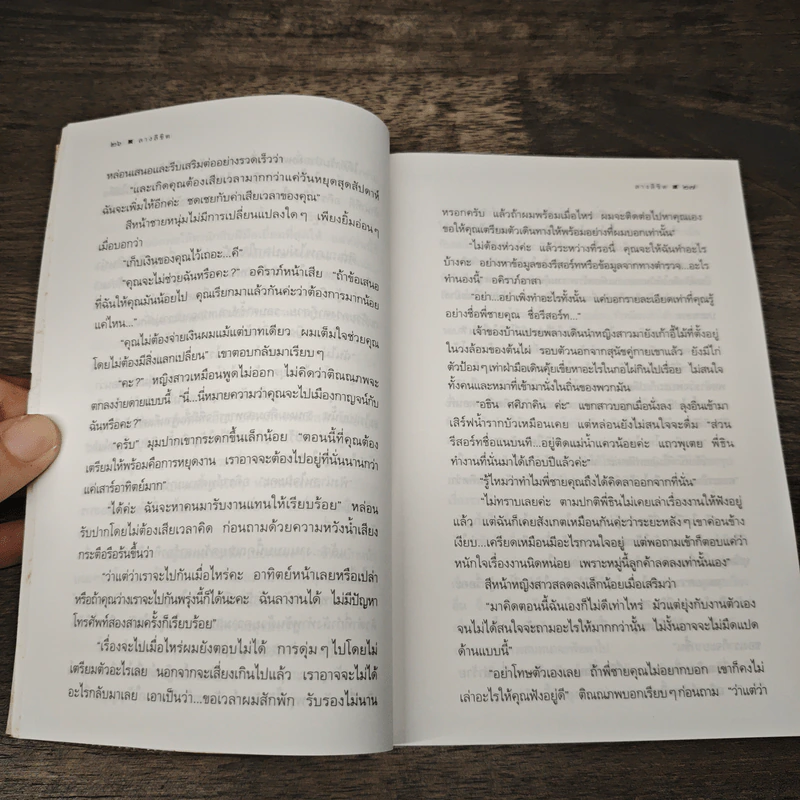 ๒๖ ■ ดาวลิขิต
หล่อนเสนอและรีบเสริมต่ออย่างรวดเร็วว่า
"และเกิดคุณต้องเสียเวลามากกว่าแค่วันหยุดสุดสัปดาห์
ฉันจะเพิ่มให้อีกค่ะ ชดเชยกับค่าเสียเวลาของคุณ"
สีหน้าชายหนุ่มไม่มีการเปลี่ยนแปลงใดๆ เพียงยิ้มอ่อนๆ
เมื่อบอกว่า
"เก็บเงินของคุณไว้เถอะ...คี"
"คุณจะไม่ช่วยฉันหรือคะ?" อคิราภ์หน้าเสีย "ถ้าข้อเสนอ
ที่ฉันให้คุณมันน้อยไป คุณเรียกมาแล้วกันค่ะว่าต้องการมากน้อย
แค่ไหน..."
"คุณไม่ต้องจ่ายเงินผมแม้แต่บาทเดียว ผมเต็มใจช่วยคุณ
โดยไม่ต้องมีสิ่งแลกเปลี่ยน" เขาตอบกลับมาเรียบๆ
"คะ?" หญิงสาวเหมือนพูดไม่ออก ไม่คิดว่าติณณภพจะ
ตกลงง่ายดายแบบนี้ "นี่...นี่หมายความว่าคุณจะไปเมืองกาญจน์กับ
ฉันหรือคะ?"
"ครับ" มุมปากเขากระตกขึ้นเล็กน้อย "ตอนนี้ที่คุณต้อง
เตรียมให้พร้อมคือการหยุดงาน เราอาจจะต้องไปอยู่ที่นั่นนานกว่า
แค่เสาร์อาทิตย์มาก"
"ได้ค่ะ ฉันจะหาคนมารับงานแทนให้เรียบร้อย" หล่อน
รับปากโดยไม่ต้องเสียเวลาคิด ก่อนถามด้วยความหวังน้ำเสียง
กระตือรือร้นขึ้นว่า
"ว่าแต่ว่าเราจะไปกันเมื่อไหร่คะ อาทิตย์หน้าเลยหรือเปล่า
หรือถ้าคุณว่างเราจะไปกันพรุ่งนี้ก็ได้นะคะ ฉันลางานได้ ไม่มีปัญหา
โทรศัพท์สองสามครั้งก็เรียบร้อย"
"เรื่องจะไปเมื่อไหร่ผมยังตอบไม่ได้ การดุ่มๆ ไปโดยไม่
เตรียมตัวอะไรเลย นอกจากจะเสี่ยงเกินไปแล้ว เราอาจจะไม่ได้
อะไรกลับมาเลย เอาเป็นว่า...ขอเวลาผมสักพัก รับรองไม่นาน
ดาวลิขิต ■ ๒๗
หรอกครับ แล้วถ้าผมพร้อมเมื่อไหร่ ผมจะติดต่อไปหาคุณเอง
ขอให้คุณเตรียมตัวเดินทางให้พร้อมอย่างที่ผมบอกเท่านั้น"
"ไม่ต้องห่วงค่ะ แล้วระหว่างที่รอนี่ คุณจะให้ฉันทำอะไร
บ้างคะ อย่างหาข้อมูลของรีสอร์ทหรือข้อมูลจากทางตำรวจ...อะไร
ทำนองนี้" อคิราภ์อาสา
"อย่า...อย่าเพิ่งทำอะไรทั้งนั้น แค่บอกรายละเอียดเท่าที่คุณรู้
อย่างชื่อพี่ชายคุณ ชื่อรีสอร์ท..."
เจ้าของบ้านเปรยพลางเดินนำหญิงสาวมายังเก้าอี้ไม้ที่ตั้งอยู่
ในวงล้อมของต้นไผ่ รอบตัวนอกจากสุนัขคู่กายเขาแล้ว ยังมีไก่
ตัวป้อมๆ เท่าฝ่ามือเดินคุ้ยเขี่ยหาอะไรในกอไผ่กินไปเรื่อย ไม่สนใจ
ทั้งคนและหมาที่เข้ามานั่งในถิ่นของพวกมัน
"อธิน ศศิภาคิน ค่ะ" แขกสาวบอกเมื่อนั่งลง ลุงอินเข้ามา
เสิร์ฟน้ำรากบัวเหมือนเคย แต่หล่อนยังไม่สนใจจะดื่ม "ส่วน
รีสอร์ทชื่อแนบนที...อยู่ติดแม่น้ำแควน้อยค่ะ แถวพุเตย พี่ธิน
ทำงานที่นั่นมาได้เกือบปีแล้วค่ะ"
"รู้ไหมว่าทำไมพี่ชายคุณถึงได้คิดลาออกจากที่นั่น"
"ไม่ทราบเลยค่ะ ตามปกติพี่ธินไม่เคยเล่าเรื่องงานให้ฟังอยู่
แล้ว แต่ฉันก็เคยสังเกตเหมือนกันค่ะว่าระยะหลังๆ เขาค่อนข้าง
เงียบ...เครียดเหมือนมีอะไรกวนใจอยู่ แต่พอถามเข้าก็ตอบแค่ว่า
หนักใจเรื่องงานนิดหน่อย เพราะหมู่นี้ลูกค้าลดลงเท่านั้นเอง"
สีหน้าหญิงสาวสลดลงเล็กน้อยเมื่อเสริมว่า
"มาคิดตอนนี้ฉันเองก็ไม่ดีเท่าไหร่ มัวแต่ยุ่งกับงานตัวเอง
จนไม่ได้สนใจจะถามอะไรให้มากกว่านั้น ไม่งั้นอาจจะไม่มืดแปด
ด้านแบบนี้"
"อย่าโทษตัวเองเลย ถ้าพี่ชายคุณไม่อยากบอก เขาก็คงไม่
เล่าอะไรให้คุณฟังอยู่ดี" ติณณภพบอกเรียบๆ ก่อนถาม "ว่าแต่ว่า